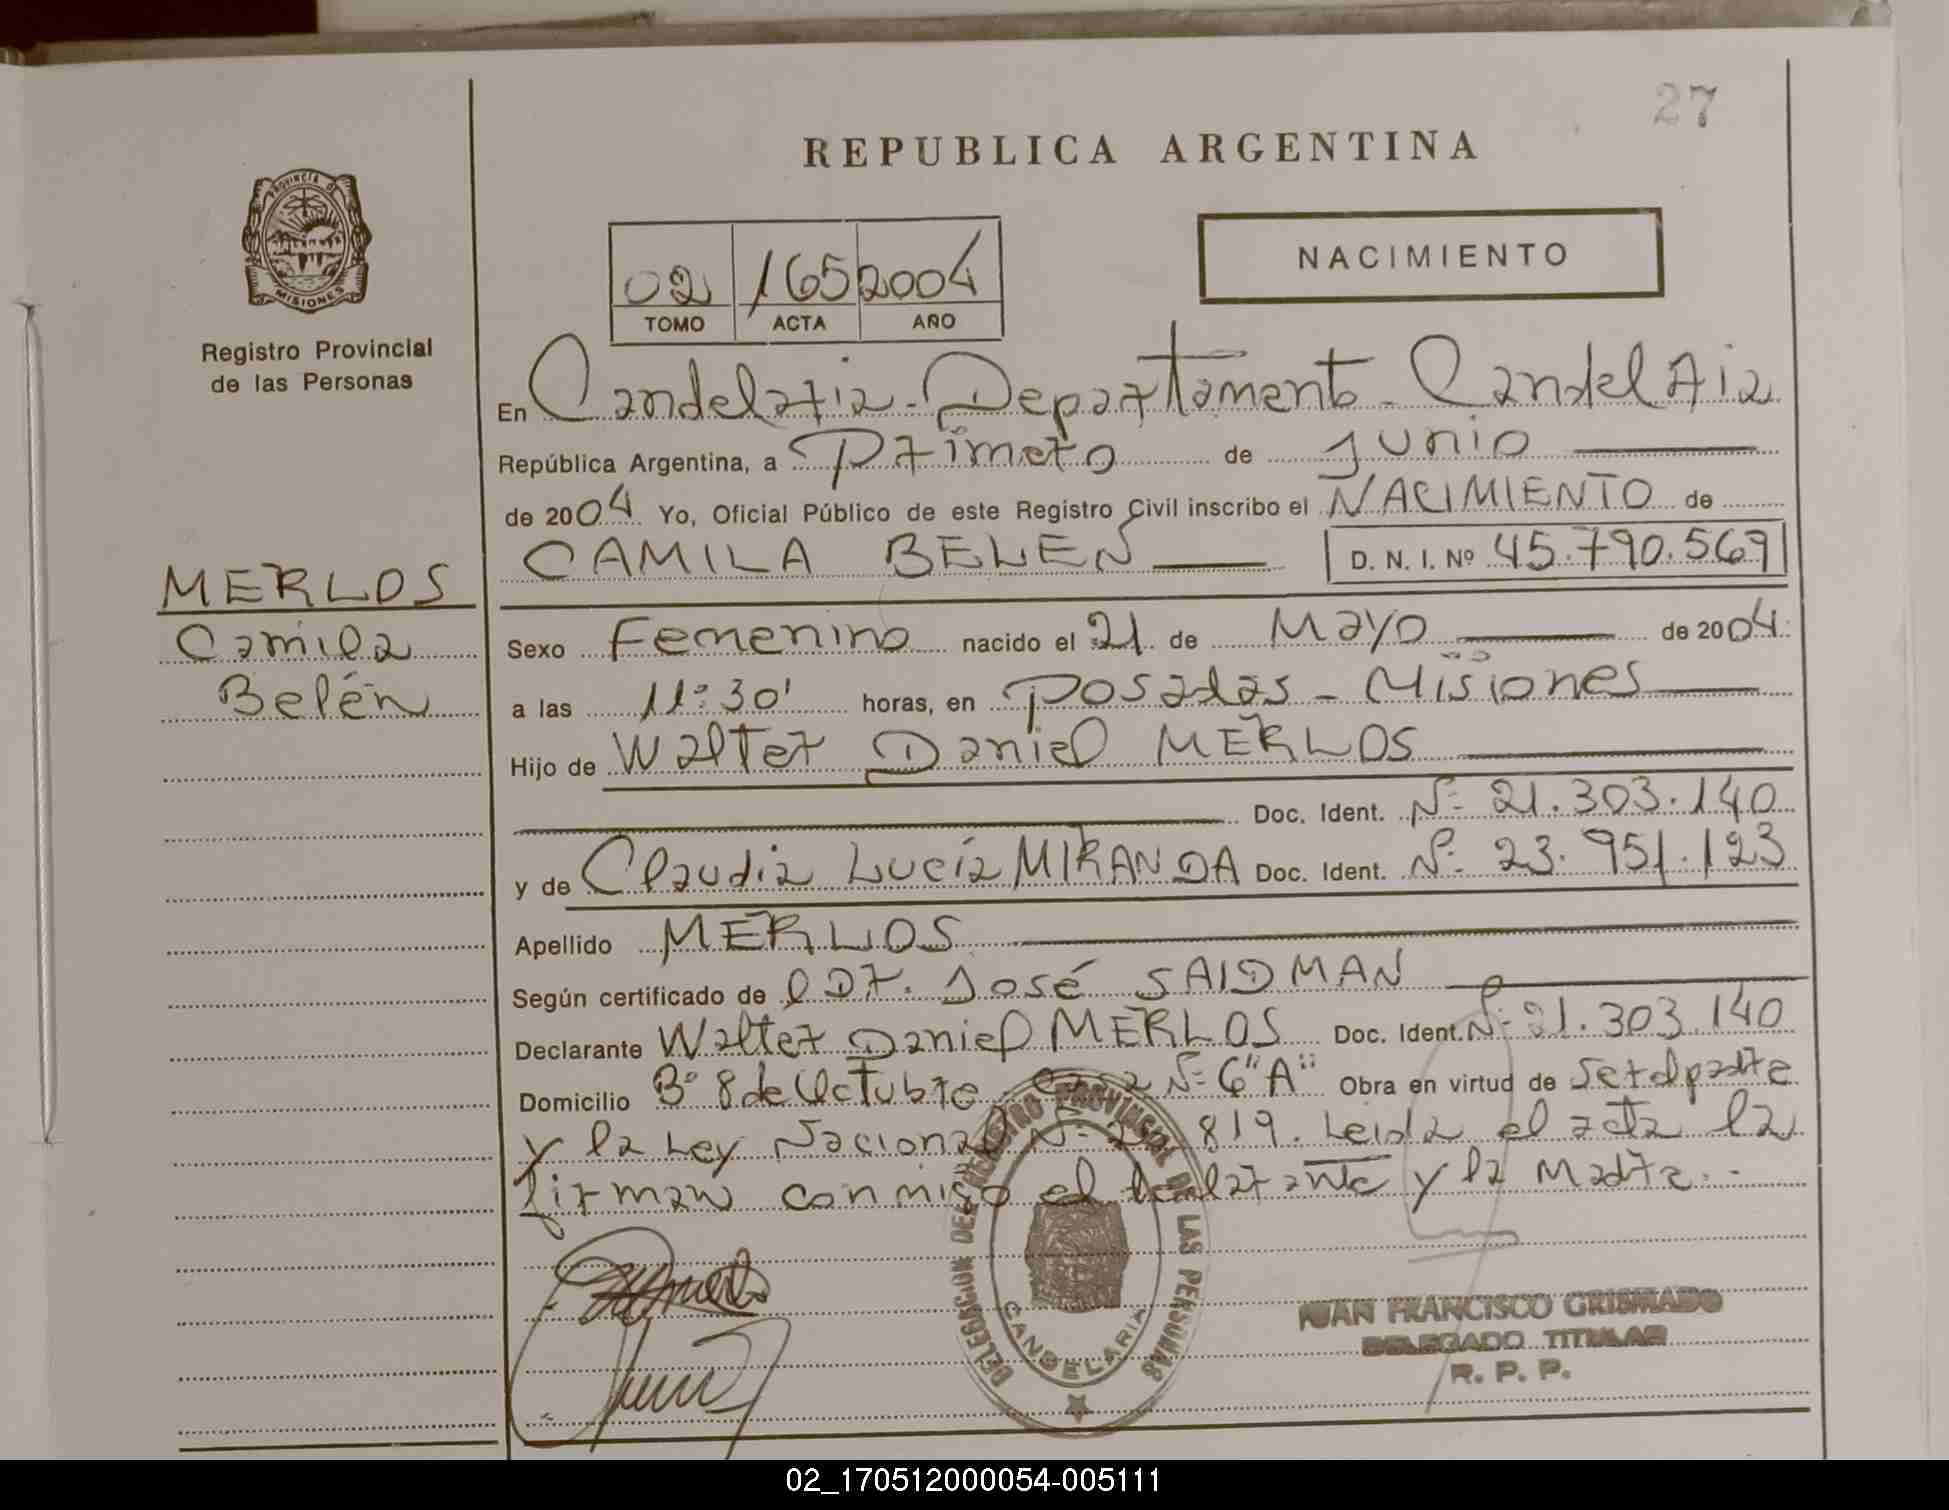 27
REPUBLICA ARGENTINA
PROVINCIA DE
MISIONES
Registro Provincial
de las Personas
NACIMIENTO
02 165 2004
TOMO ACTA AÑO
En Candelaria - Departamento - Candelaria
República Argentina, a Primero de Junio
de 2004 Yo, Oficial Público de este Registro Civil inscribo el NACIMIENTO de
CAMILA BELEN D. N. I. Nº 45.790.569
MERLOS
Camila
Belén
Sexo Femenino nacido el 21 de Mayo de 2004
a las 11:30' horas, en Posadas - Misiones
Hijo de Walter Daniel MERLOS
Doc. Ident. Nº 21.303.140
y de Claudia Lucía MIRANDA Doc. Ident. Nº 23.951.123
Apellido MERLOS
Según certificado de l Dr. José SAIDMAN
Declarante Walter Daniel MERLOS Doc. Ident. Nº 21.303.140
Domicilio Bº 8 de Octubre casa Nº 6 "A" Obra en virtud de ser el padre
y la Ley Nacional Nº 819. Leida el acta la
firman conmigo el declarante y la Madre.-
DELEGACION DEL REGISTRO PROVINCIAL DE LAS PERSONAS
CANDELARIA
JUAN FRANCISCO GRISMADO
DELEGADO TITULAR
R. P. P.
02_170512000054-005111